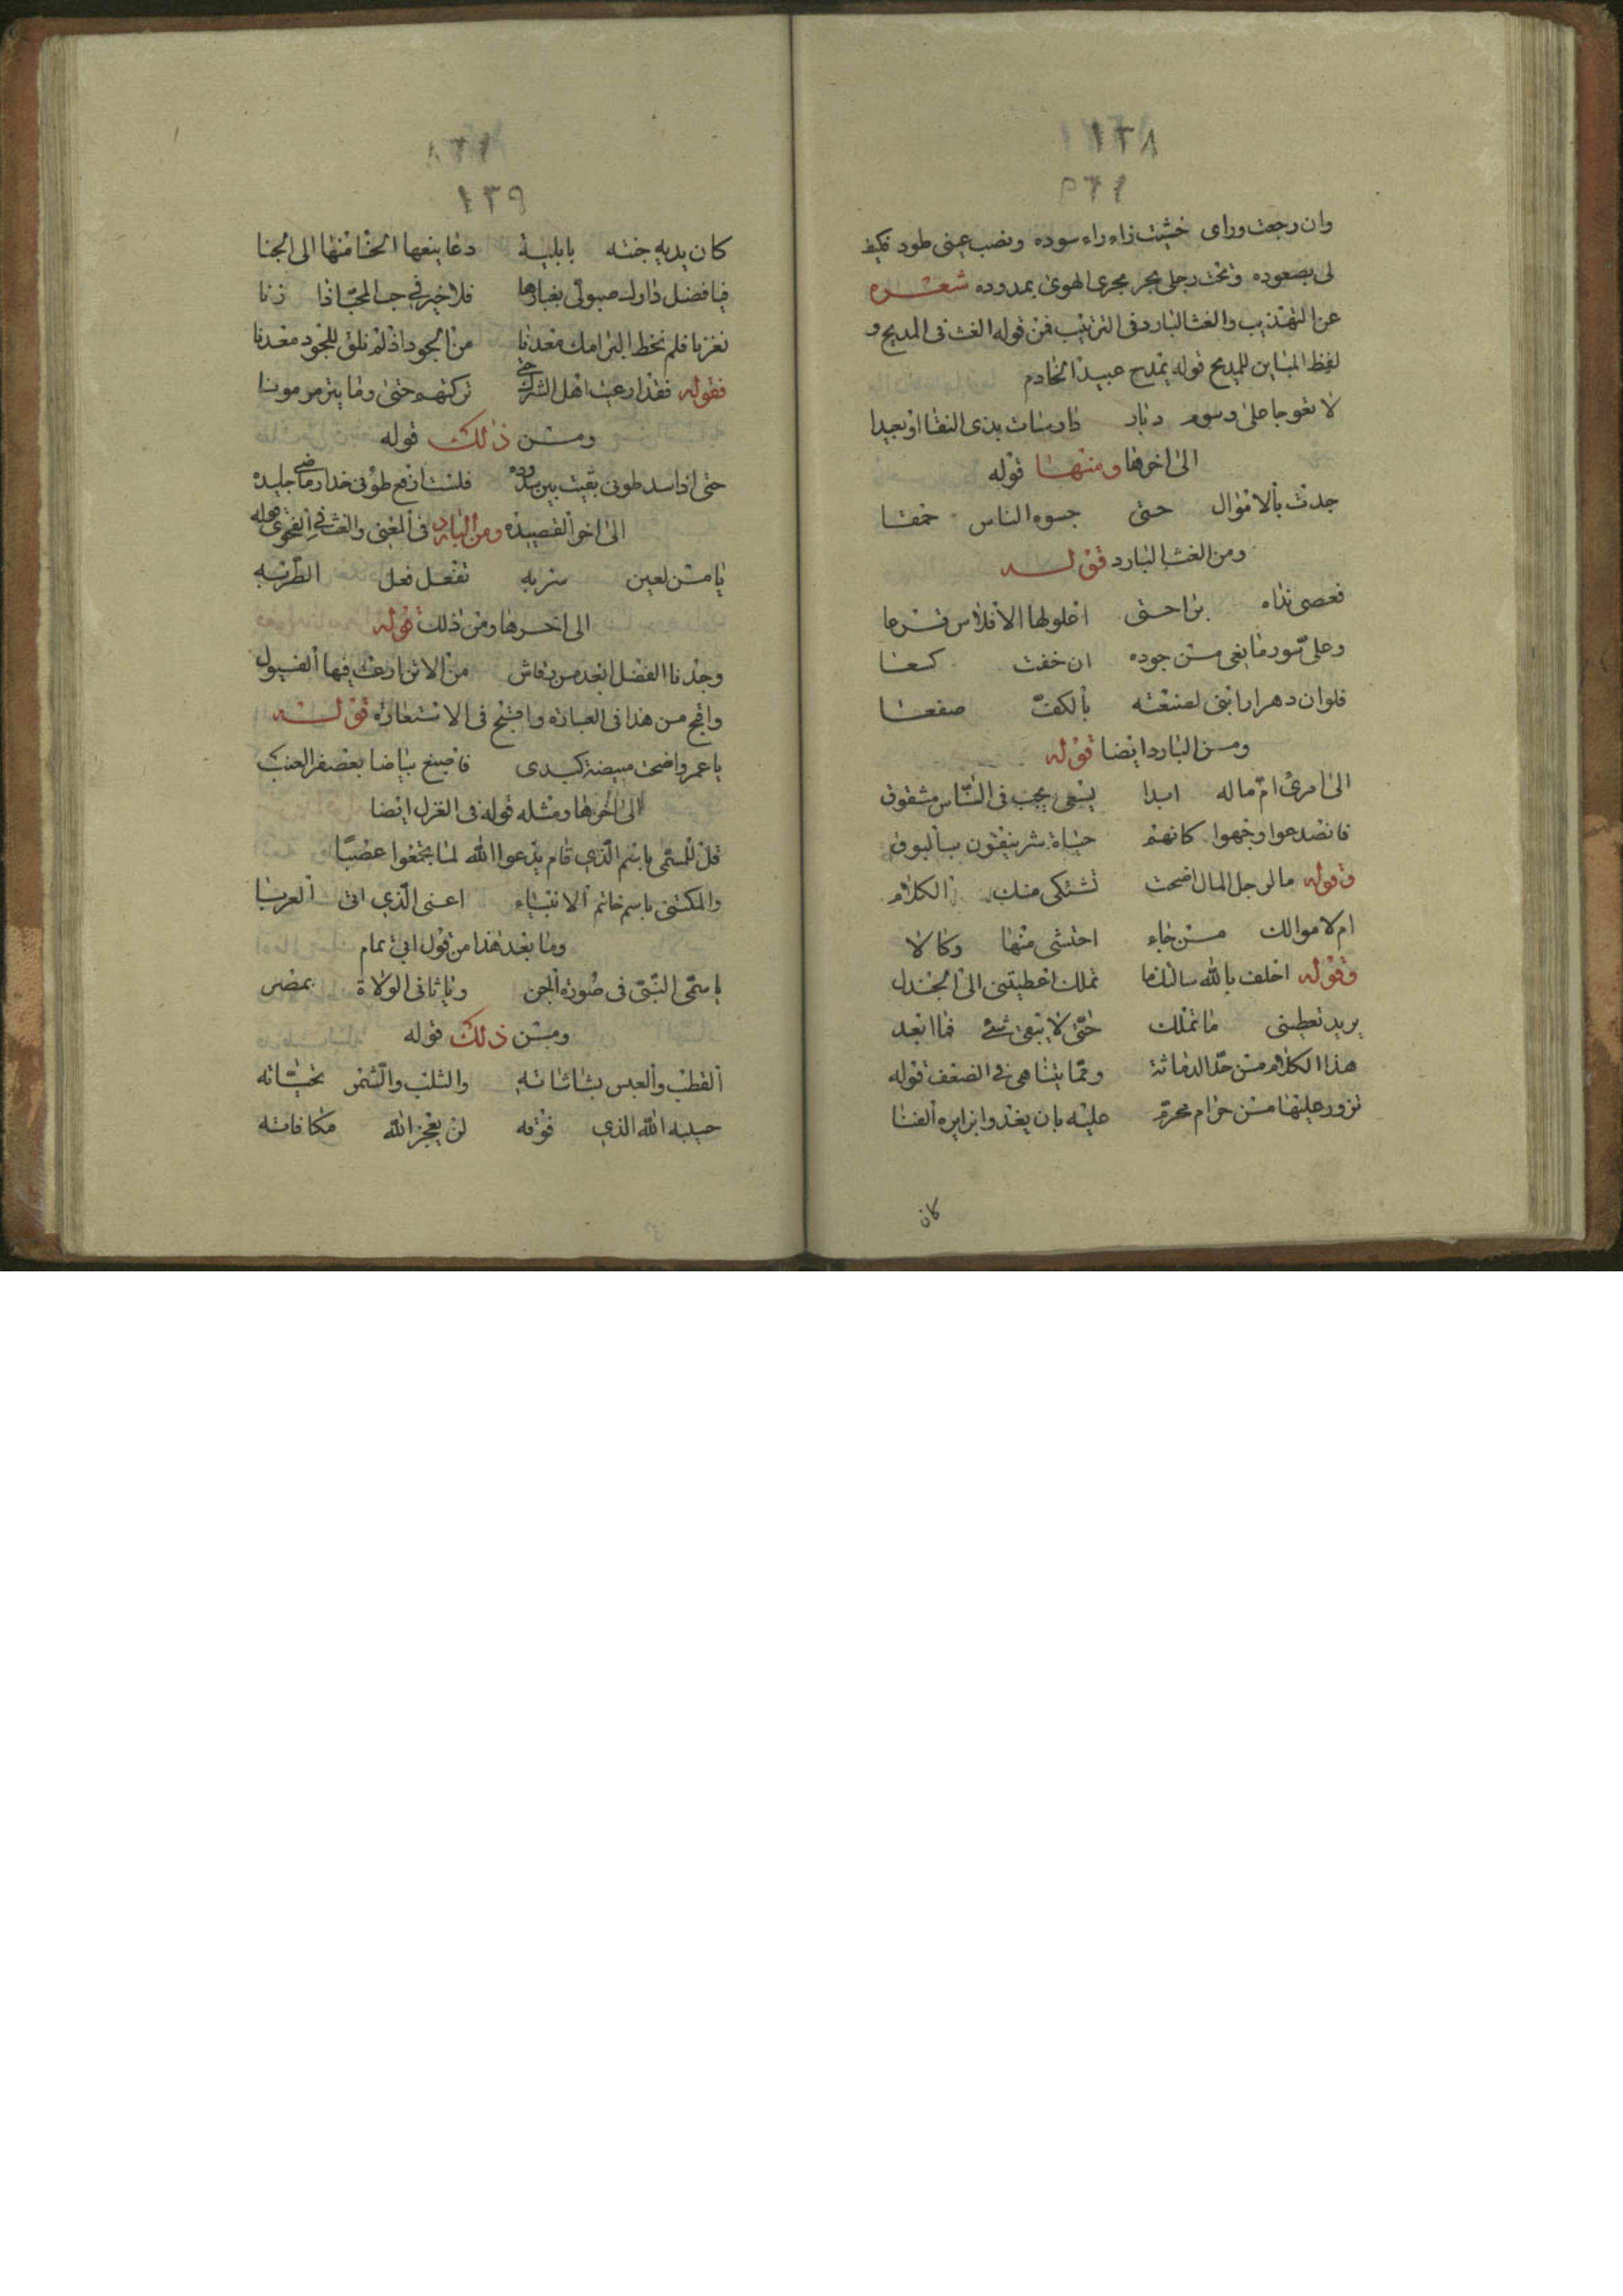 ١٣٨
وان رجعت وراى خشيت زاء راء سوده ونصب عينى طود فكيف
لى بصعوده وتحت رجلى بحر مجرى الهوى بمدوده شعره
عن التهذيب والغث البارد فى الترتيب فمن قوله الغث فى المديح و
لفظ المباين للمديح قوله يمدح عبيد الخادم
لا تعوجا على رسوم ديار دارسات بذى النقا او بجيدا
الى اخرها ومنها قوله
جدت بالاموال حتى جسوه الناس حمقا
ومن الغث البارد قوله
فعصى نداه براحتى اعلو لها الافلاس قرعا
وعلى تسور ما بقى من جوده ان خفت كسعا
فلو ان دهرا رابنى لصفعته بالكف صفعا
ومن البارد ايضا قوله
الى امرئ ام ماله ابدا يسعى بجب فى الناس مشقوق
فانصدعوا وجهوا كانهم جباة شر ينفقون بالبوق
وقوله ما لرجل المال اضحت تشتكى منك الكلام
ام لاموالك من جاء احتشى منها وكالا
وقوله احلف بالله سالنكما تملك اعطيتنى الى الجندل
يريد تعطينى ما تملك حتى لا يبقى شئ فما ابعد
هذا الكلام من حد الدماثة ومما يتناهى فى الضعف قوله
تزور عليها من حرام محرم عليه بان يغدوا بزايره الفنا
كان
١٣٩
كان يديه جنته بابلية دعا ينعها الحنا منها الى الجنا
فيا فضل دارك صبوتى بغبارها فلا خير فى حب المحب اذا زنا
نعزنا فلم نخط البرامك معدنا من الجود اذ لم نلق للجود معدنا
فقوله فقد ارعبت اهل الشرك حتى تركتهم حتى وما يترمرمونا
ومن ذلك قوله
حتى اذا سد طوى بقيت بين سدوده فلست ارفع طوفى خدار ماضى جليده
الى اخر القصيده ومن البارد فى المعنى والغث فى الفحوى قوله
يا من لعين سربه تفعل فعل الطربه
الى اخرها ومن ذلك قوله
وجدنا الفضل ابعد من رقاش من الاتن ارعت فيها الفيول
واقبح من هذا فى العبارة وافتح فى الاستعارة قوله
يا عمرو اضحت مبيضة كبدى فاصبغ بياضا بعصفر العنب
الى اخرها ومثله قوله فى الغزل ايضا
قل للمسمى باسم الذي قام يدعوا الله لما بخعوا عصبا
والمكتنى باسم خاتم الانبياء اعنى الذي اتى العربا
وما بعد هذا من قول ابي تمام
يا سمى النبى فى صورة الجن ويا ثانى الولاة بمضر
ومن ذلك قوله
القطب والعبس بشاشاته والثلب والشتم تحياته
حسيبه الله الذي فوقه لن يعجز الله مكافاته